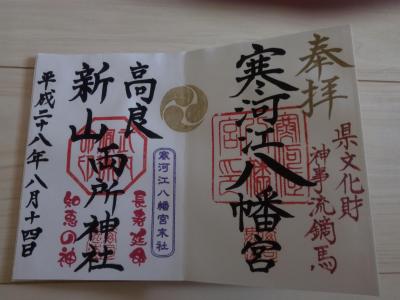 奉拝
寒河江八幡宮
県文化財
神事流鏑馬
高良
新山両所神社
寒河江八幡宮末社
長寿延命
知恵の神
平成二十八年八月十四日